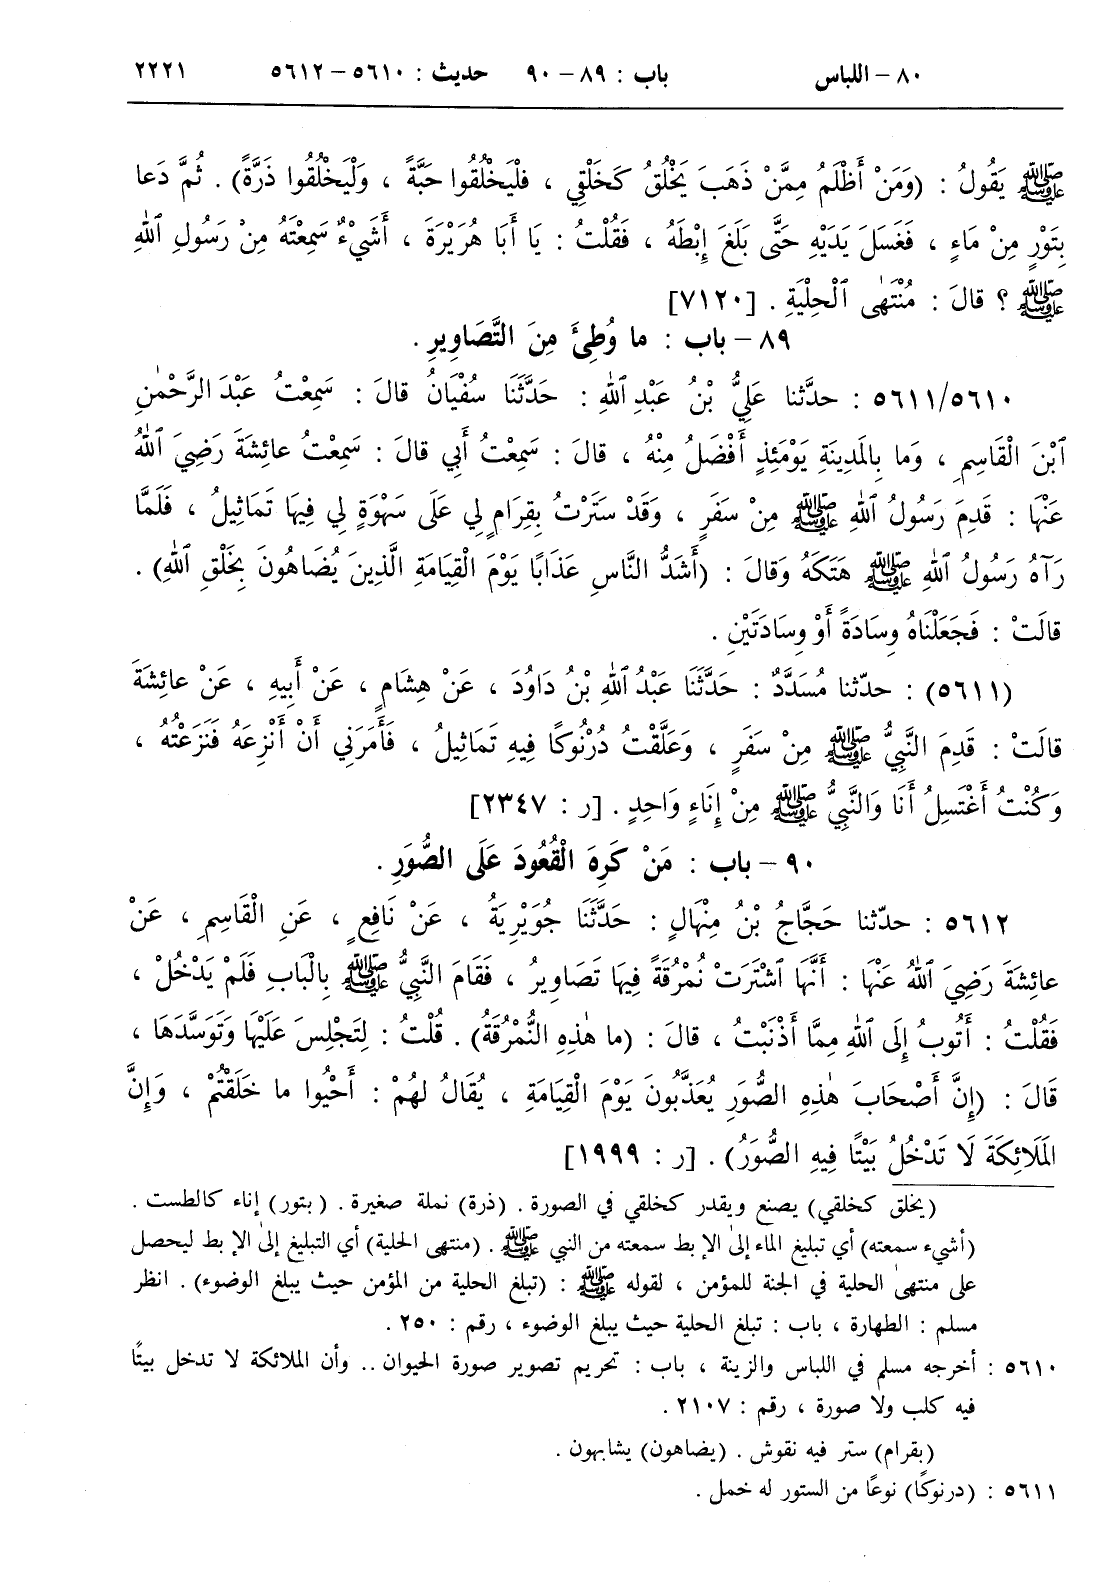 ٨٠ – اللباس باب : ٨٩ – ٩٠ حديث : ٥٦١٠ – ٥٦١٢ ٢٢٢١
ﷺ يَقُولُ : (وَمَنْ أَظْلَمُ مِمَّنْ ذَهَبَ يَخْلُقُ كَخَلْقِي ، فَلْيَخْلُقُوا حَبَّةً ، وَلْيَخْلُقُوا ذَرَّةً) . ثُمَّ دَعا
بِتَوْرٍ مِنْ مَاءٍ ، فَغَسَلَ يَدَيْهِ حَتَّى بَلَغَ إِبْطَهُ ، فَقُلْتُ : يَا أَبَا هُرَيْرَةَ ، أَشَيْءٌ سَمِعْتَهُ مِنْ رَسُولِ ٱللهِ
ﷺ ؟ قالَ : مُنْتَهَى ٱلْحِلْيَةِ . [٧١٢٠]
٨٩ – باب : ما وُطِئَ مِنَ التَّصَاوِيرِ .
٥٦١١/٥٦١٠ : حدّثنا عَلِيُّ بْنُ عَبْدِ ٱللهِ : حَدَّثَنَا سُفْيَانُ قالَ : سَمِعْتُ عَبْدَ الرَّحْمٰنِ
ٱبْنَ الْقَاسِمِ ، وَما بِالمَدِينَةِ يَوْمَئِذٍ أَفْضَلُ مِنْهُ ، قالَ : سَمِعْتُ أَبِي قالَ : سَمِعْتُ عائِشَةَ رَضِيَ ٱللهُ
عَنْهَا : قَدِمَ رَسُولُ ٱللهِ ﷺ مِنْ سَفَرٍ ، وَقَدْ سَتَرْتُ بِقِرَامٍ لِي عَلَى سَهْوَةٍ لِي فِيهَا تَمَاثِيلُ ، فَلَمَّا
رَآهُ رَسُولُ ٱللهِ ﷺ هَتَكَهُ وَقالَ : (أَشَدُّ النَّاسِ عَذَابًا يَوْمَ الْقِيَامَةِ الَّذِينَ يُضَاهُونَ بِخَلْقِ ٱللهِ) .
قالَتْ : فَجَعَلْنَاهُ وِسَادَةً أَوْ وِسَادَتَيْنِ .
(٥٦١١) : حدّثنا مُسَدَّدٌ : حَدَّثَنَا عَبْدُ ٱللهِ بْنُ دَاوُدَ ، عَنْ هِشَامٍ ، عَنْ أَبِيهِ ، عَنْ عائِشَةَ
قالَتْ : قَدِمَ النَّبِيُّ ﷺ مِنْ سَفَرٍ ، وَعَلَّقْتُ دُرْنُوكًا فِيهِ تَمَاثِيلُ ، فَأَمَرَنِي أَنْ أَنْزِعَهُ فَنَزَعْتُهُ ،
وَكُنْتُ أَغْتَسِلُ أَنَا وَالنَّبِيُّ ﷺ مِنْ إِنَاءٍ وَاحِدٍ . [ر : ٢٣٤٧]
٩٠ – باب : مَنْ كَرِهَ الْقُعُودَ عَلَى الصُّوَرِ .
٥٦١٢ : حدّثنا حَجَّاجُ بْنُ مِنْهَالٍ : حَدَّثَنَا جُوَيْرِيَةُ ، عَنْ نَافِعٍ ، عَنِ الْقَاسِمِ ، عَنْ
عائِشَةَ رَضِيَ ٱللهُ عَنْهَا : أَنَّهَا ٱشْتَرَتْ نُمْرُقَةً فِيهَا تَصَاوِيرُ ، فَقَامَ النَّبِيُّ ﷺ بِالْبَابِ فَلَمْ يَدْخُلْ ،
فَقُلْتُ : أَتُوبُ إِلَى ٱللهِ مِمَّا أَذْنَبْتُ ، قالَ : (ما هٰذِهِ النُّمْرُقَةُ) . قُلْتُ : لِتَجْلِسَ عَلَيْهَا وَتَوَسَّدَهَا ،
قَالَ : (إِنَّ أَصْحَابَ هٰذِهِ الصُّوَرِ يُعَذَّبُونَ يَوْمَ الْقِيَامَةِ ، يُقَالُ لَهُمْ : أَحْيُوا ما خَلَقْتُمْ ، وَإِنَّ
المَلَائِكَةَ لَا تَدْخُلُ بَيْتًا فِيهِ الصُّوَرُ) . [ر : ١٩٩٩]
(يخلق كخلقي) يصنع ويقدر كخلقي في الصورة . (ذرة) نملة صغيرة . (بتور) إناء كالطست .
(أشيء سمعته) أي تبليغ الماء إلى الإبط سمعته من النبي ﷺ . (منتهى الحلية) أي التبليغ إلى الإبط ليحصل
على منتهى الحلية في الجنة للمؤمن ، لقوله ﷺ : (تبلغ الحلية من المؤمن حيث يبلغ الوضوء) . انظر
مسلم : الطهارة ، باب : تبلغ الحلية حيث يبلغ الوضوء ، رقم : ٢٥٠ .
٥٦١٠ : أخرجه مسلم في اللباس والزينة ، باب : تحريم تصوير صورة الحيوان .. وأن الملائكة لا تدخل بيتًا
فيه كلب ولا صورة ، رقم : ٢١٠٧ .
(بقرام) ستر فيه نقوش . (يضاهون) يشابهون .
٥٦١١ : (درنوكًا) نوعًا من الستور له خمل .